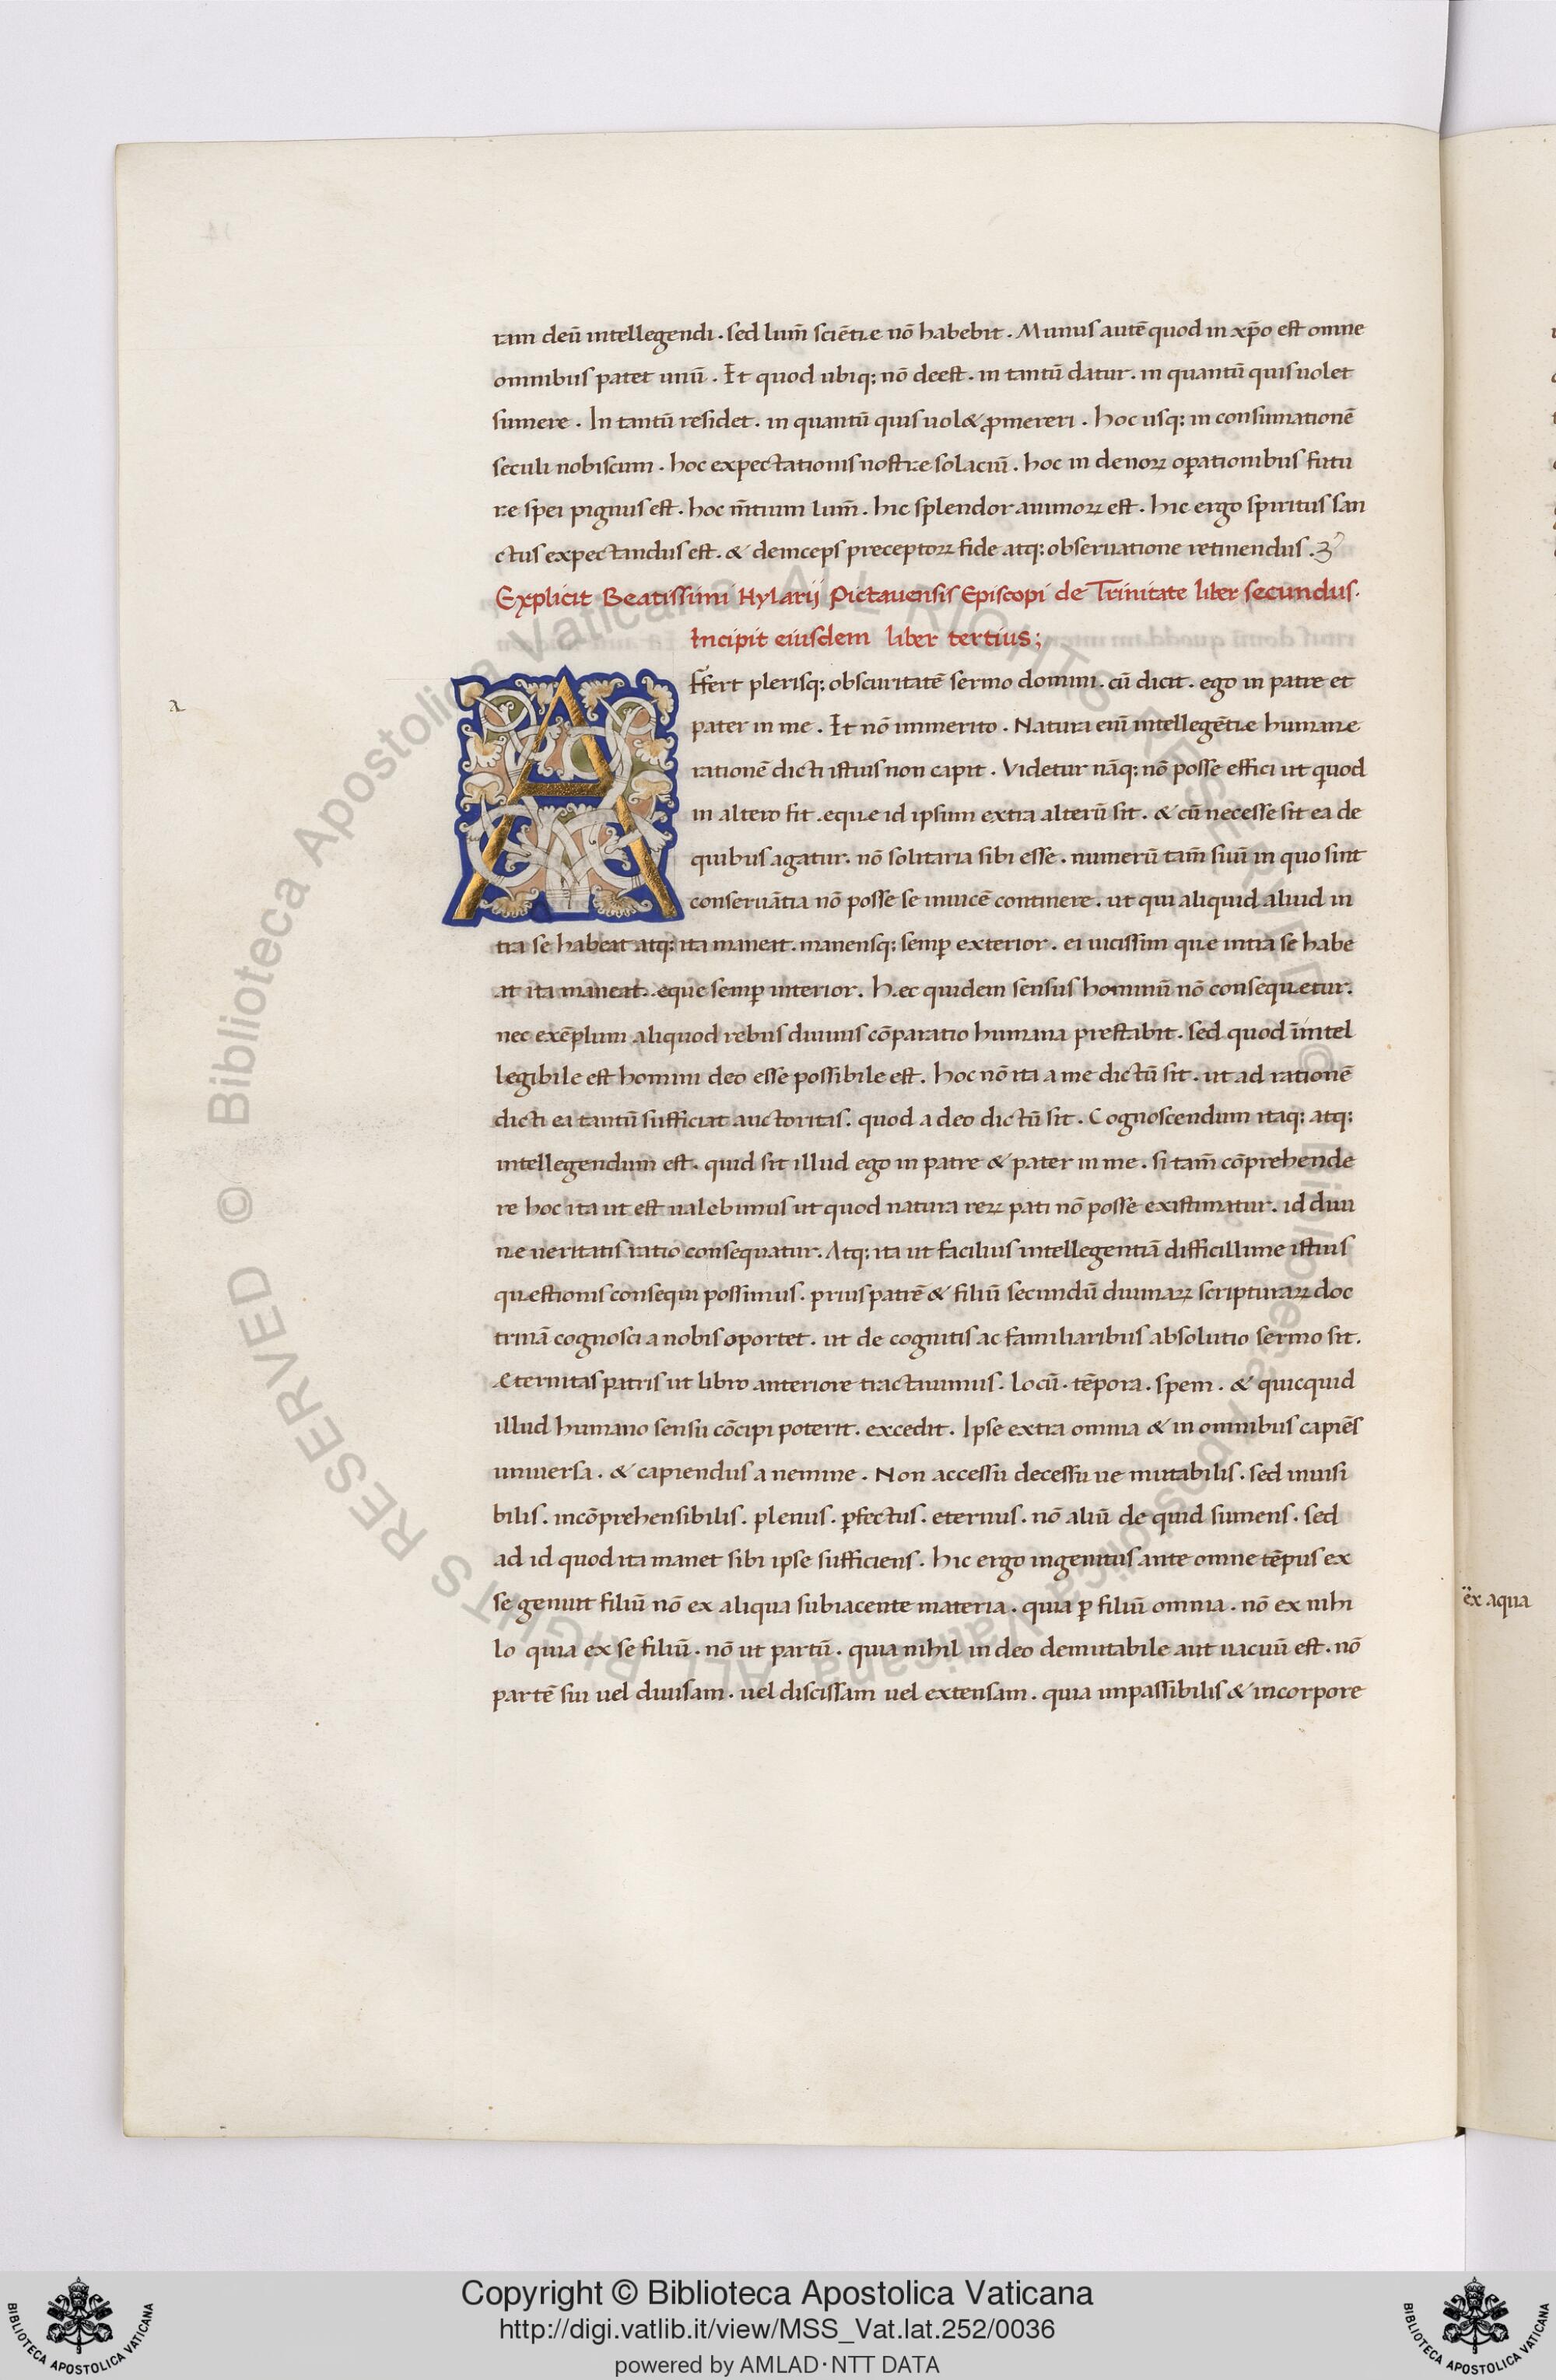 ram deū intellegendi . sed lum̄ sciētiæ nō habebit . Munus autē quod in xp̄o est omne
omnibus patet unū . Et quod ubiq; nō deest . in tantū datur . in quantū quis uolet
sumere . In tantū residet . in quantū quis uol& ꝓmereri . hoc usq; in consumationē
seculi nobiscum . hoc expectationis nostræ solaciū . hoc in denoꝝ oꝑationibus futu
ræ spei pignus est . hoc m̄tium lum̄ . hic splendor animoꝝ est . hic ergo spiritus san
ctus expectandus est . & deinceps preceptoꝝ fide atq; obseruatione retinendus .
Explicit Beatissimi Hylarij Pictauensis Episcopi de Trinitate liber secundus .
Incipit eiusdem liber tertius ;
a
Affert plerisq; obscuritatē sermo domini . cū dicit . ego in patre et
pater in me . Et nō immerito . Natura eni᷒ intellegētiæ humanæ
rationē dicti istius non capit . Videtur nāq; nō posse effici ut quod
in altero sit . æque id ipsum extra alterū sit . & cū necesse sit ea de
quibus agatur . nō solitaria sibi esse . numerū tam̄ suū in quo sint
conseruātia nō posse se inuicē continere . ut qui aliquid aliud in
tra se habeat atq; ita maneat . manensq; semꝑ exterior . ei uicissim quæ intra se habe
at ita maneat . æque semꝑ interior . hæc quidem sensus hominū nō consequetur .
nec exēplum aliquod rebus diuinis cōparatio humana prestabit . sed quod inintel
legibile est homini deo esse possibile est . hoc nō ita a me dictū sit . ut ad rationē
dicti ea tantū sufficiat auctoritas . quod a deo dictū sit . Cognoscendum itaq; atq;
intellegendum est . quid sit illud ego in patre & pater in me . si tam̄ cōprehende
re hoc ita ut est ualebimus ut quod natura reꝝ pati nō posse existimatur . id diui
næ ueritatis ratio consequatur . Atq; ita ut facilius intellegentiā difficillimę istius
quæstionis consequi possimus . prius patrē & filiū secundū diuinaꝝ scripturaꝝ doc
trinā cognosci a nobis oportet . ut de cognitis ac familiaribus absolutio sermo sit .
Æternitas patris ut libro anteriore tractauimus . locū . tēpora . spem . & quicquid
illud humano sensu cōcipi poterit . excedit . Ipse extra omnia & in omnibus capiēs
uniuersa . & capiendus a nemine . Non accessu decessu ue mutabilis . sed inuisi
bilis . incōprehensibilis . plenus . ꝑfectus . eternus . nō aliū de quid sumens . sed
ad id quod ita manet sibi ipse sufficiens . hic ergo ingenitus ante omne tēpus ex
se genuit filiū nō ex aliqua subiacente materia . quia ꝑ filiū omnia . nō ex nihi
lo quia ex se filiū . nō ut partū . quia nihil in deo demutabile aut uacuū est . nō
partē sui uel diuisam . uel discissam uel extensam . quia impassibilis & incorpore
ex aqua
© Biblioteca Apostolica Vaticana ALL RIGHTS RESERVED
© Biblioteca Apostolica Vaticana ALL RIGHTS RESERVED
Copyright © Biblioteca Apostolica Vaticana
http://digi.vatlib.it/view/MSS_Vat.lat.252/0036
powered by AMLAD·NTT DATA
BIBLIOTECA APOSTOLICA VATICANA
BIBLIOTECA APOSTOLICA VATICANA